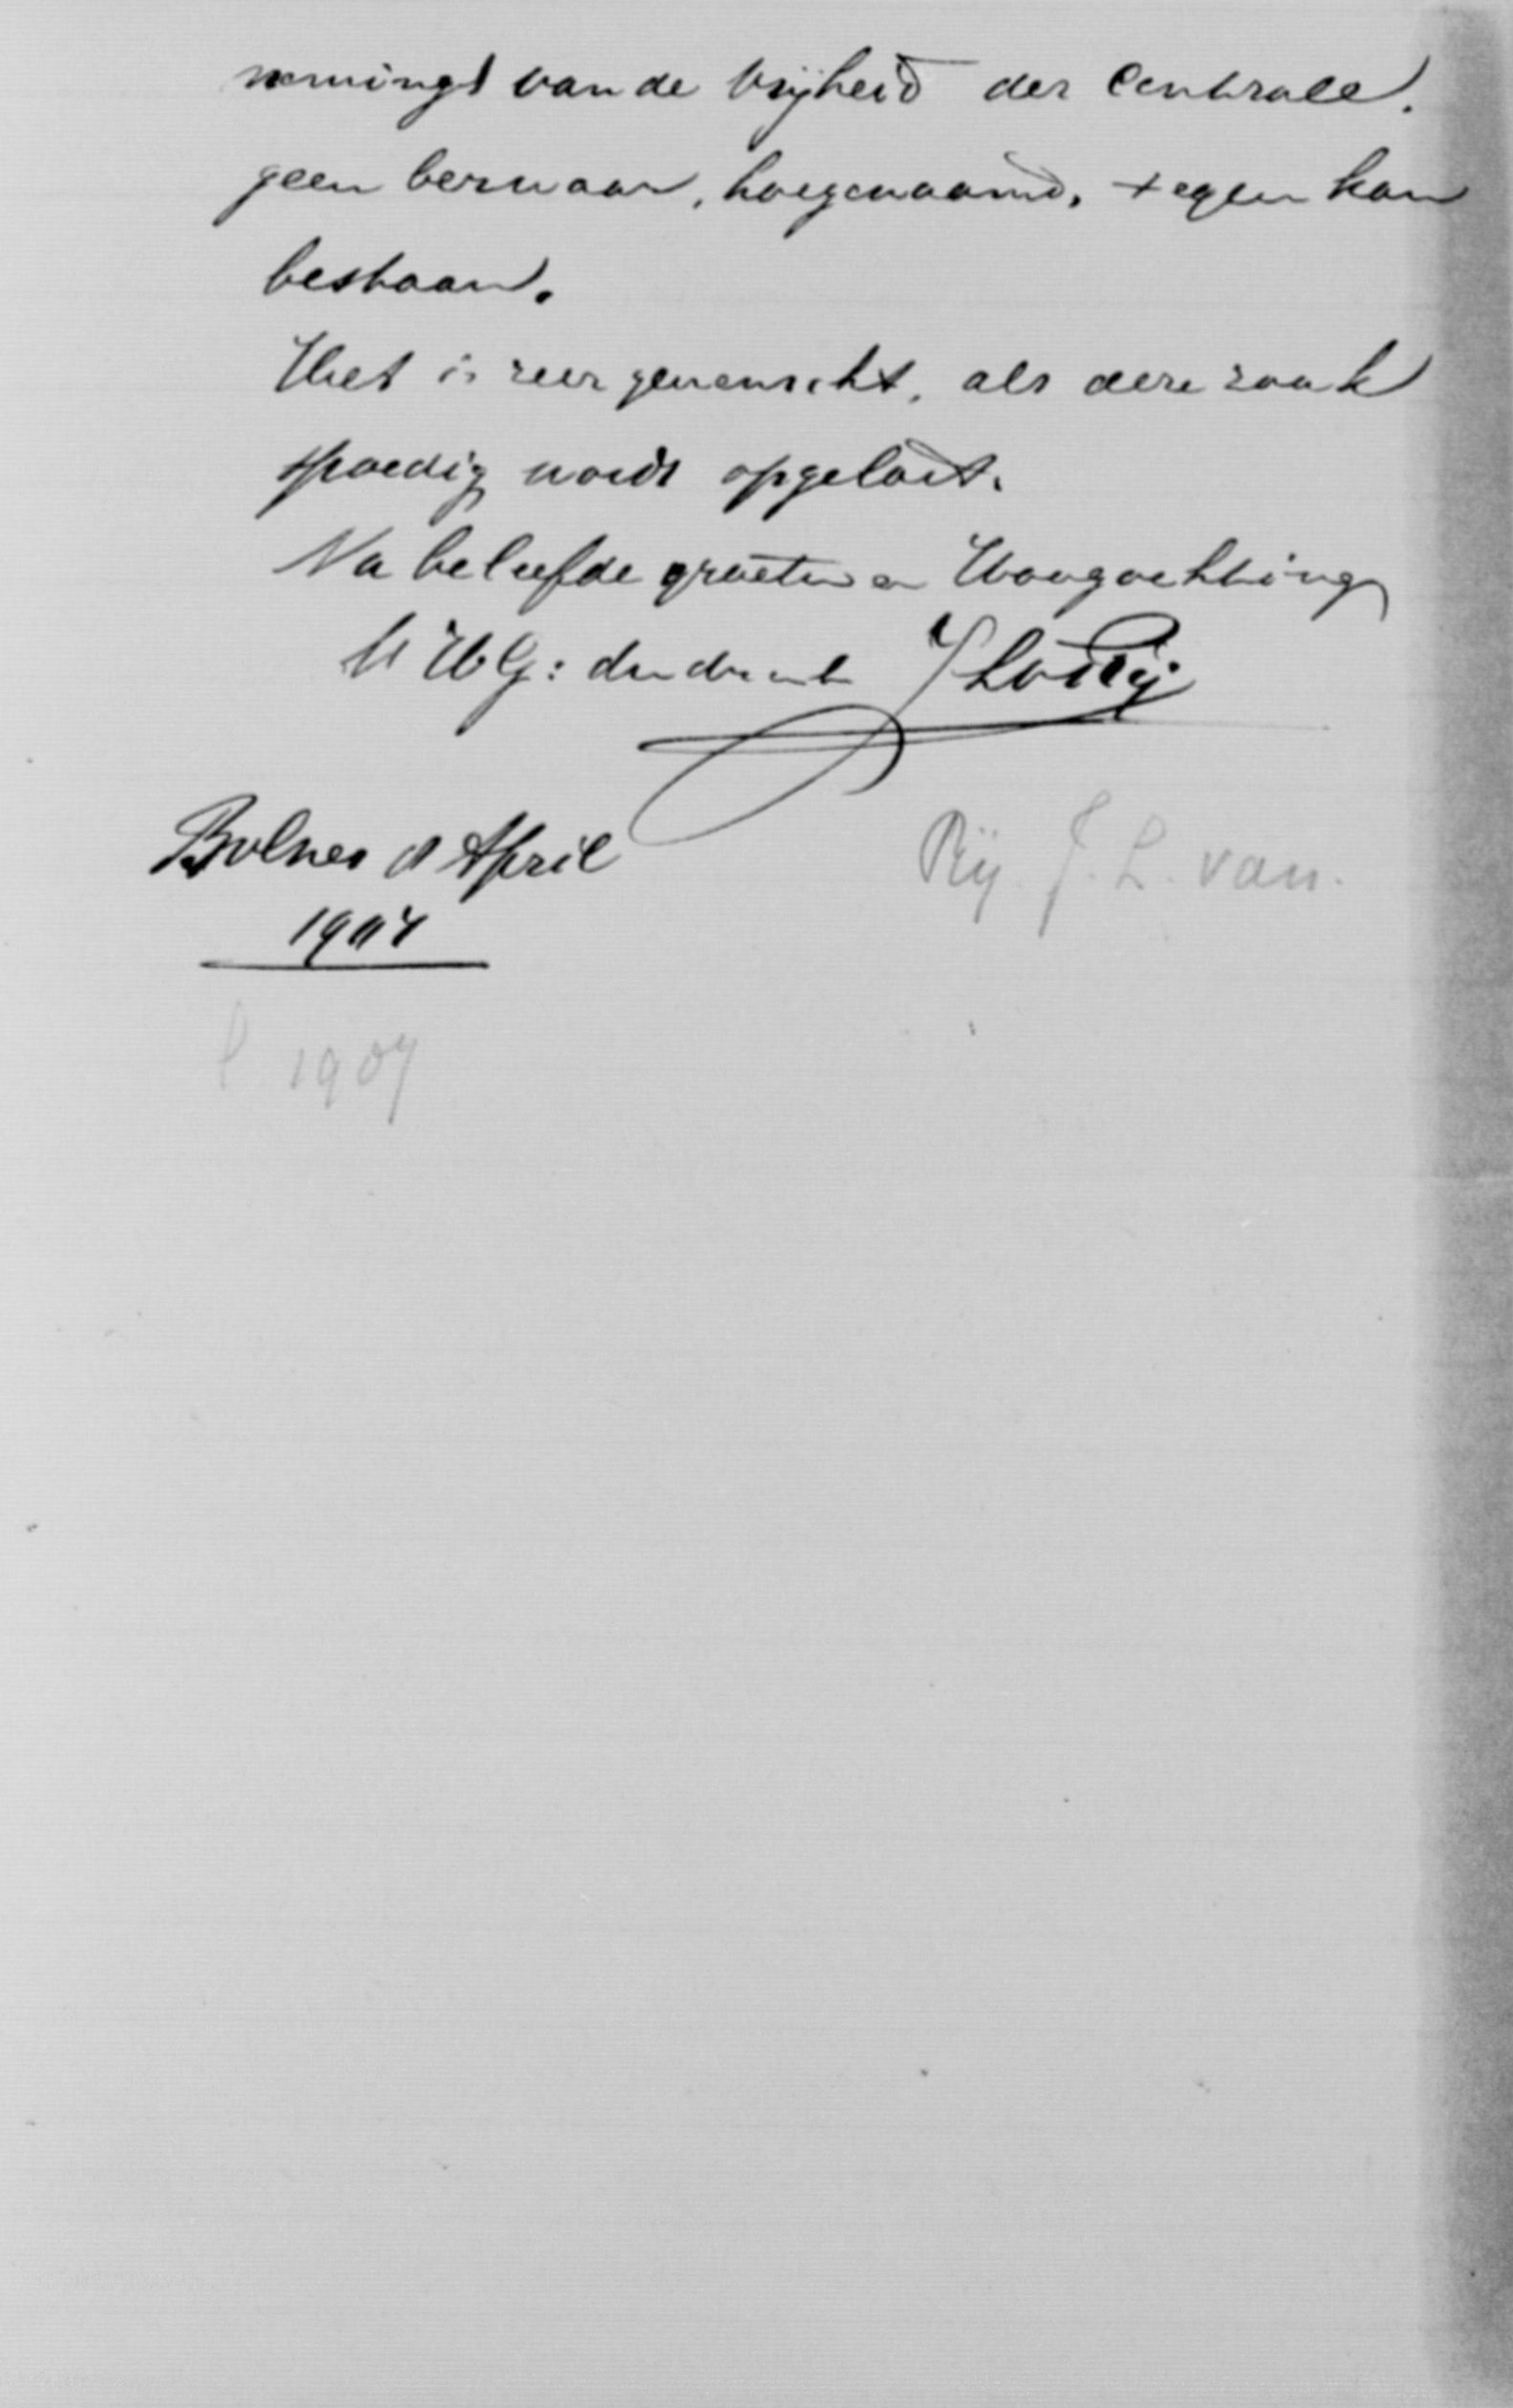 nemingt van de vrijheid der Centrale.
geen bezwaar, hoegenaamd, tegen kan
bestaan.
Het is zeer gewenscht, als deze zaak
spoedig wordt opgelost.
Na beleefde groeten en Hoogachting
UEG: dw dienaar
Bolnes April
1907
Rij. J. L. van.
1907